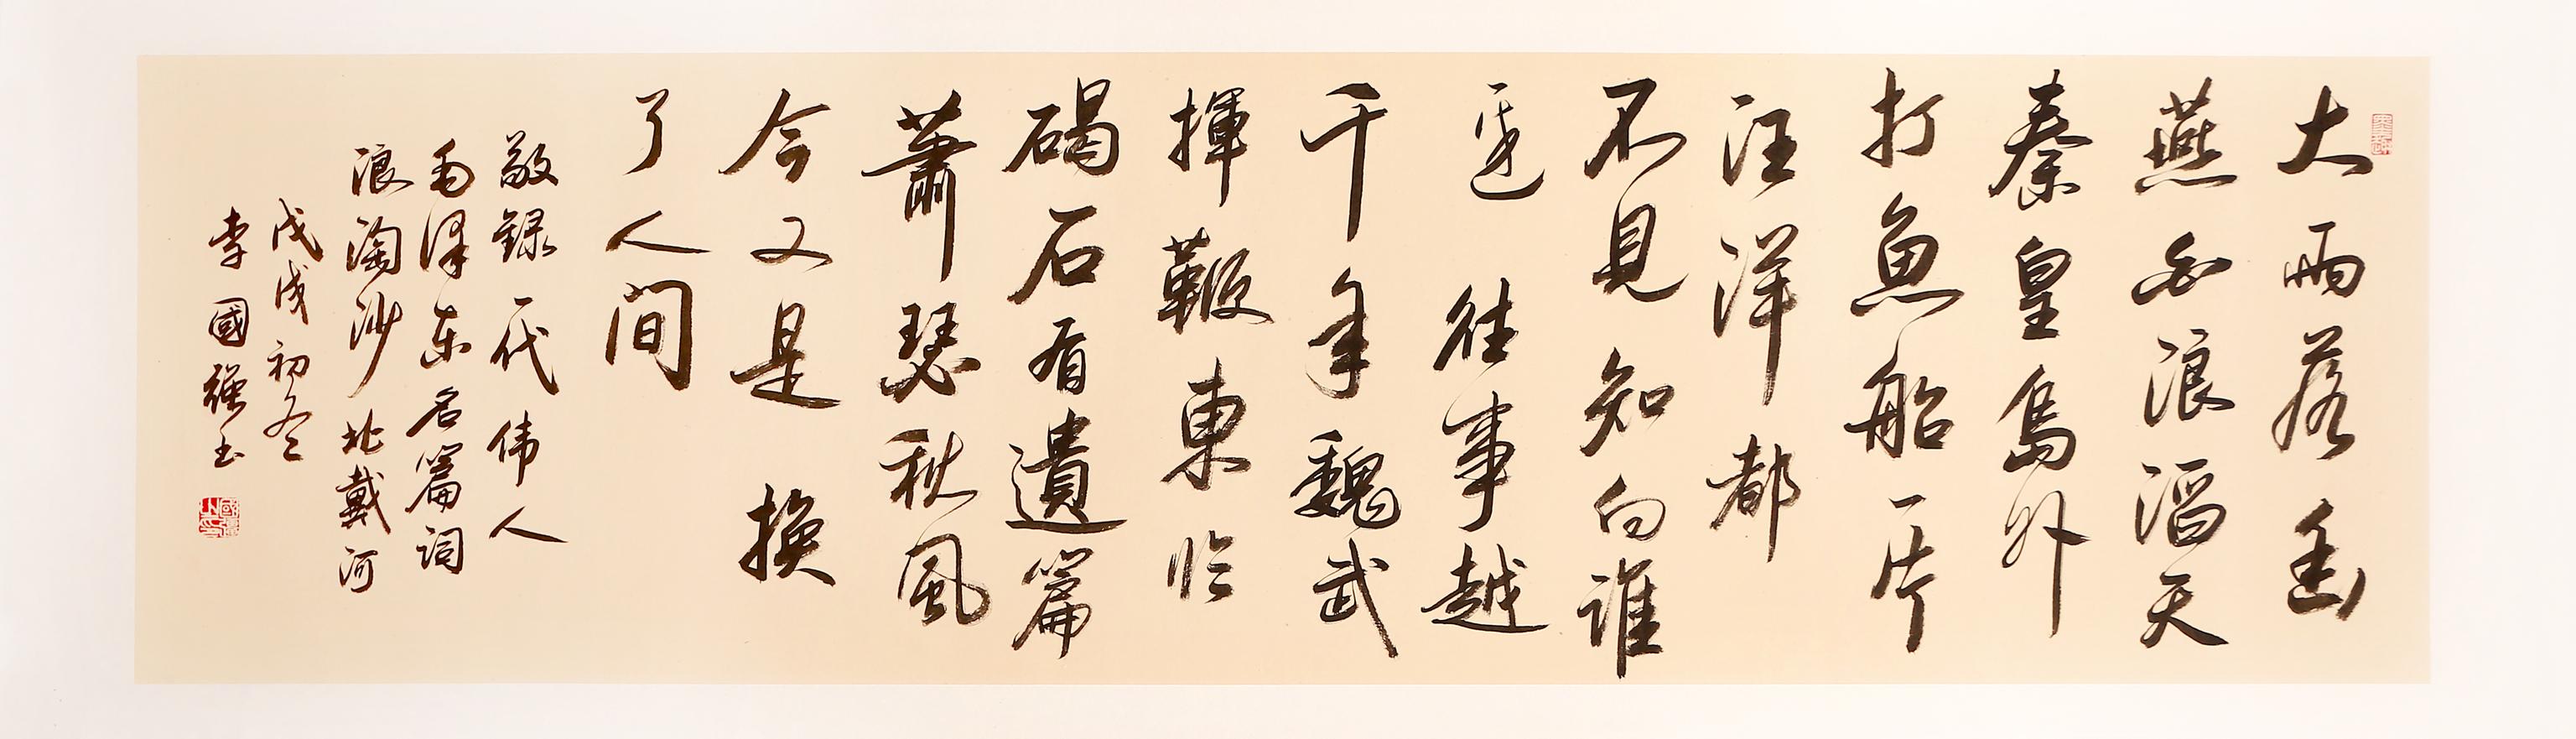 大雨落幽
燕白浪滔天
秦皇島外
打魚船一片
汪洋都
不見知向誰
邊 往事越
千年魏武
揮鞭東臨
碣石有遺篇
蕭瑟秋風
今又是 換
了人间
敬録一代伟人
毛泽东名篇词
浪淘沙北戴河
戊戌初冬
李國強书